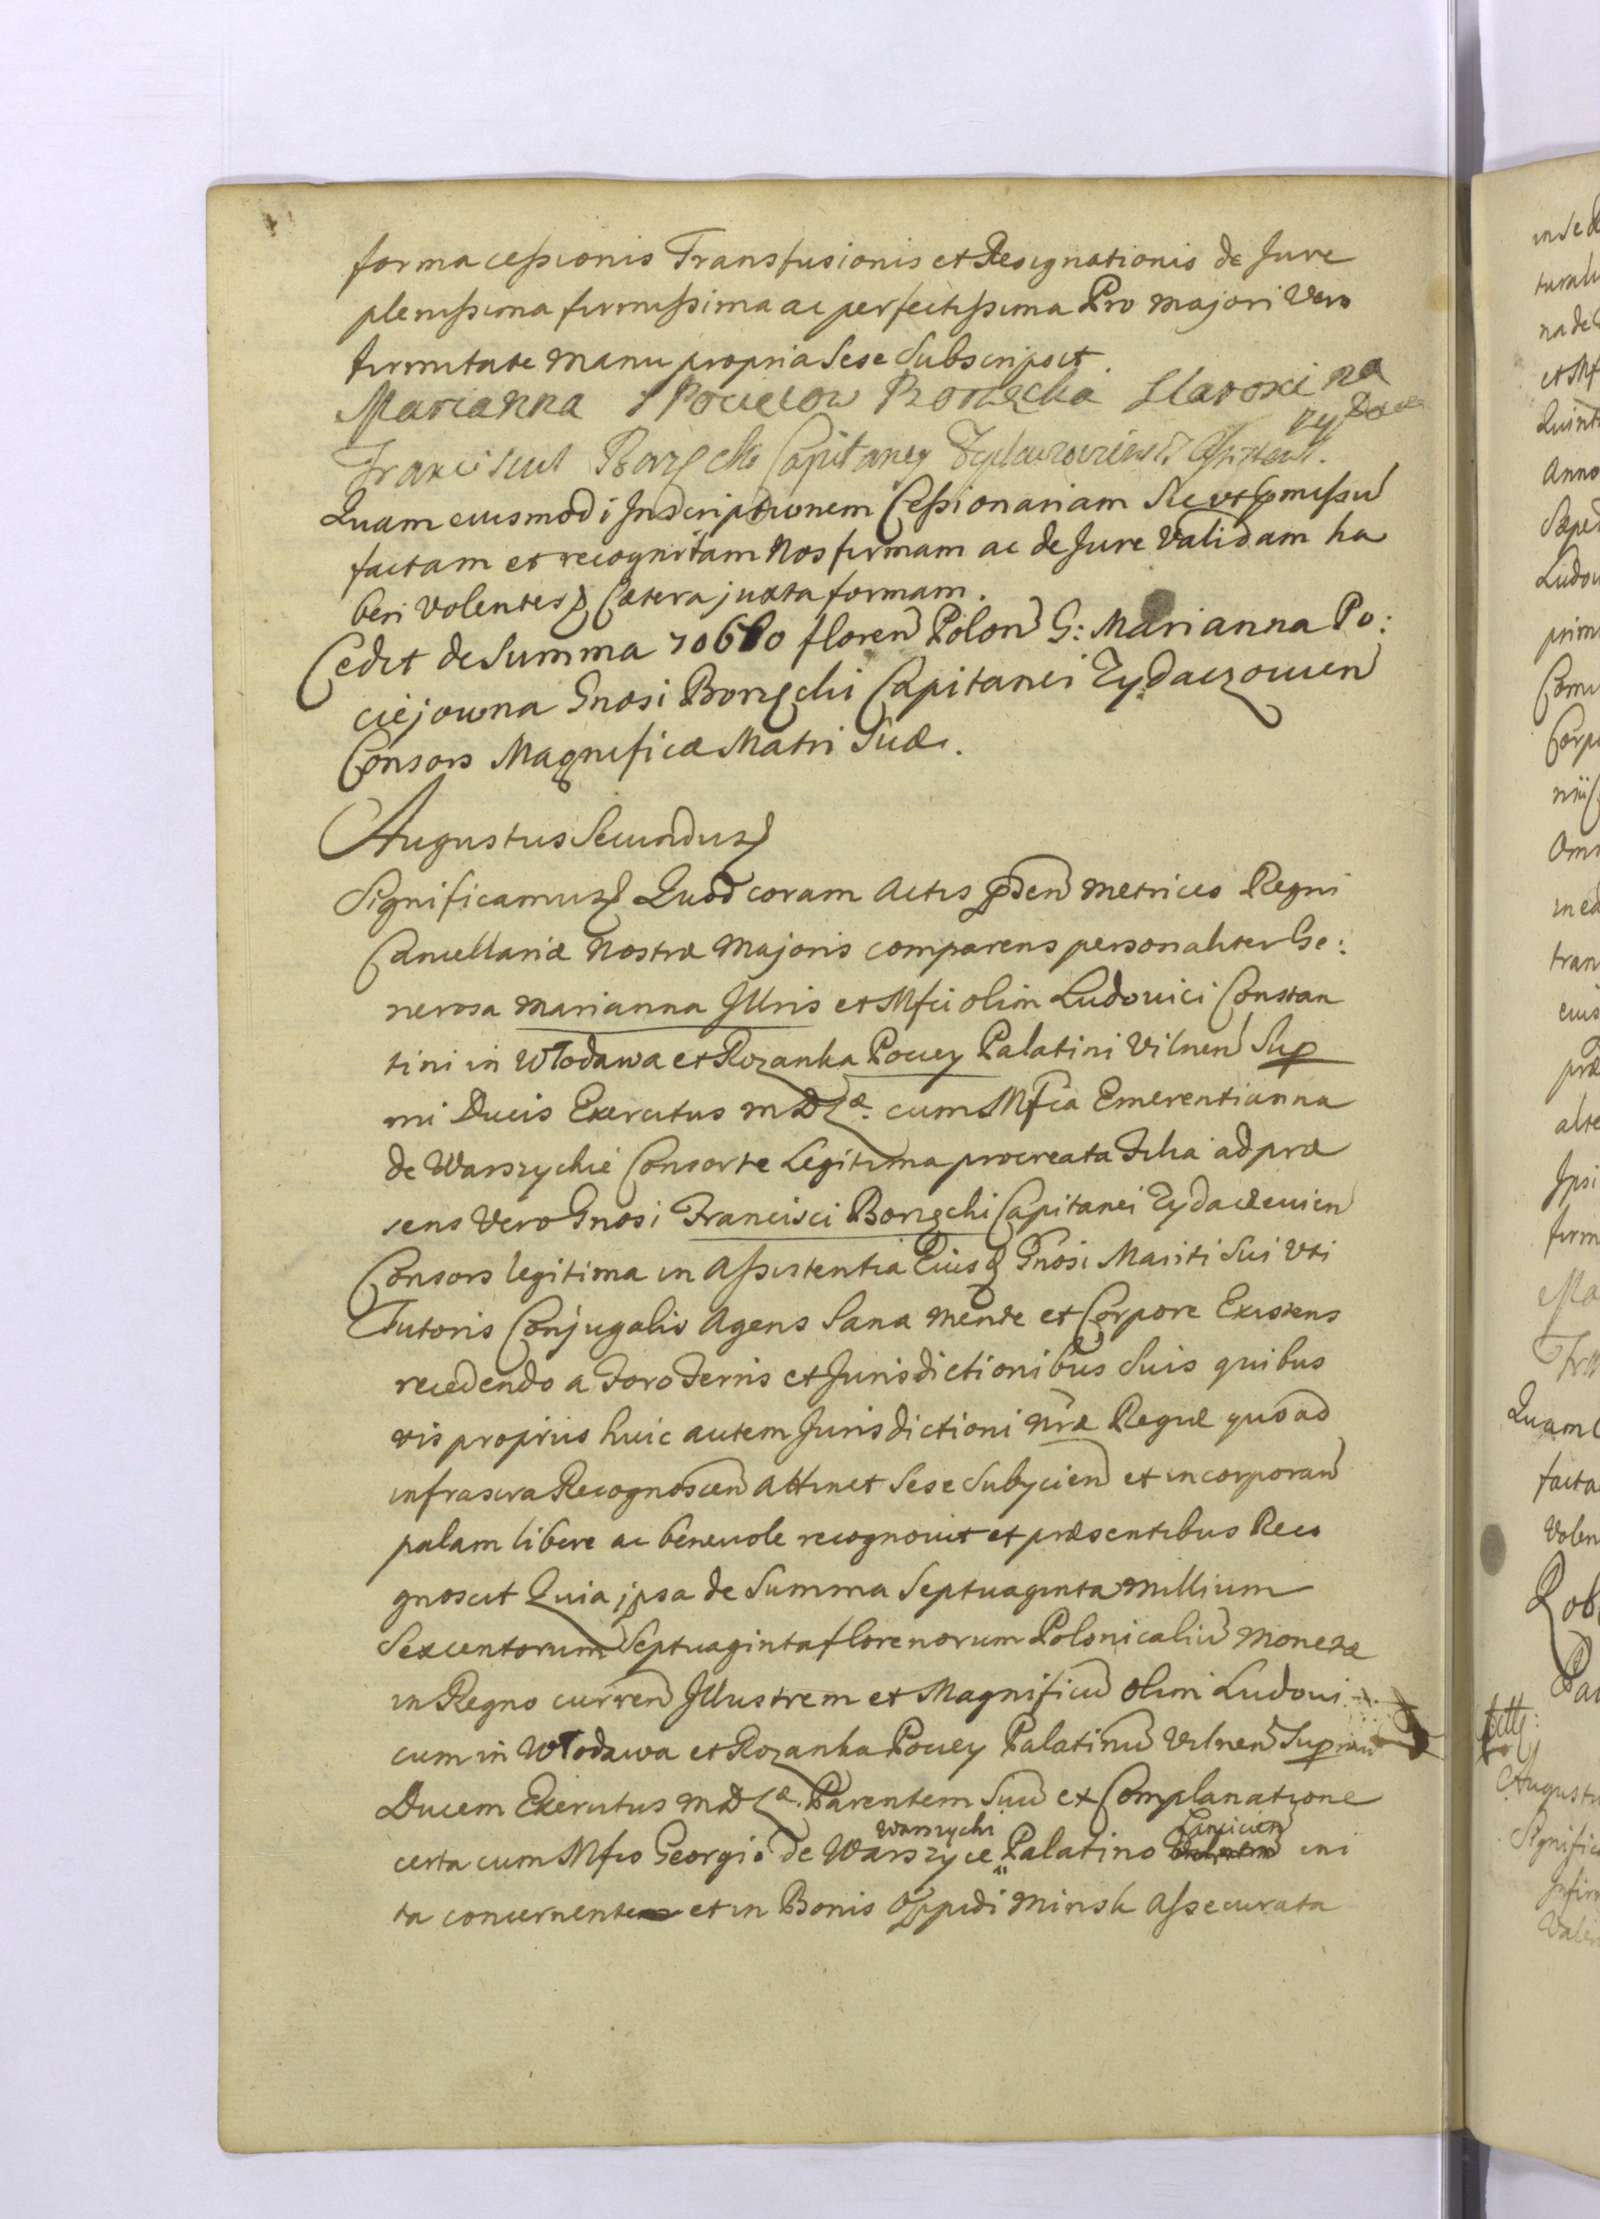 forma cessionis Transfusionis et Resignationis de Jure
plenissima firmissima ac perfectissima Pro majori Vero
firmitate manu propria Sese Subscripsit.
Marianna Pocieiow Borzęcka Staroscina
Franciscus Borzęcki Capitaney
Quam eiusmodi Inscriptionem Cessionariam Sic ut pmissu
factam et recognitam Nos firmam ac de Jure Validam ha
beri Volentes Cætera juxta formam.
Cedit de Summa 70670 floren Polon G: Marianna Po:
ciejowna Gnosi Borzęchi Capitanei Zydaczowien
Consors Magnificæ Matri Suæ.
Augustus Secundus
Significamus Quod coram Actis pden metrices Regni
Cancellariæ Nostræ Majoris comparens personaliter Ge:
nerosa Marianna Jllris et Mfci olim Ludovici Constan
tini in Włodawa et Rozanka Pociey Palatini Vilnen Sup
mi Ducis Exercitus MDLæ. cum Mfca Emerentianna
de Warszychie Consorte Legitima procreata Filia ad præ
sens Vero Gnosi Francisci Borzęchi Capitanei Zydaczevien
Consors legitima in Assistentia Eiusq Gnosi Mariti Sui Vti
Tutoris Conjugalis Agens Sana mente et Corpore Existens
recedendo a Foro Terris et Jurisdictionibus Suis quibus
vis propriis huic autem Jurisdictioni nræ Regiæ quoad
infrascra Recognoscen Attinet Sese Subycien et incorporan
palam libere ac benevole recognovit et præsentibus Reco
gnoscit Quia jpsa de Summa Septuaginta Millium
Sexcentorum Septuaginta florenorum Polonicaliu Monetæ
in Regno curren Jllustrem et Magnificu olim Ludovi
cum in Włodawa et Rozanka Pociey Palatinu Vilnen Supmu
Ducem Exercitus MDLæ. Parentem Suu ex Complanatione
Warszychi Lincicien
certa cum Mfco Georgio de Warszyce Palatino ini
ta concernente et in Bonis Oppidi Minsk Assecurata